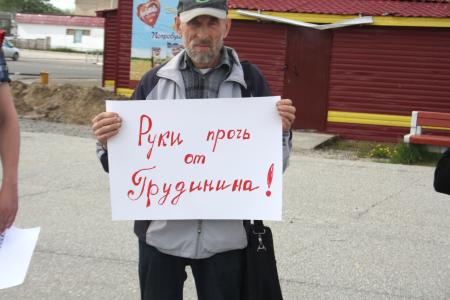 Руки прочь
от
Грудинина!